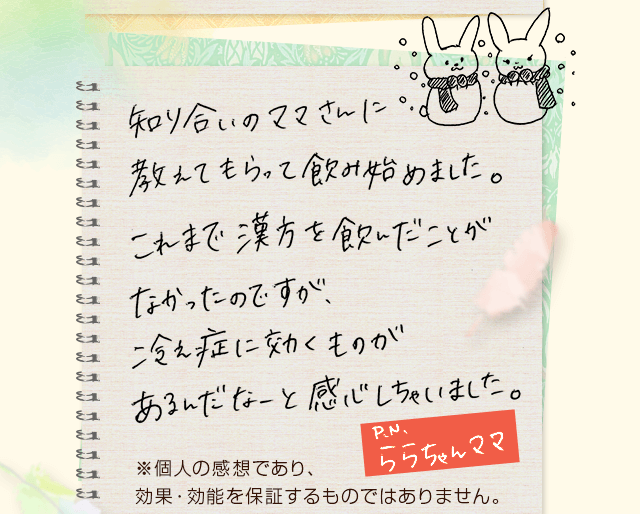 知り合いのママさんに
教えてもらって飲み始めました。
これまで漢方を飲んだことが
なかったのですが、
冷え症に効くものが
あるんだなーと感心しちゃいました。
P.N、
ららちゃんママ
※個人の感想であり、
効果・効能を保証するものではありません。